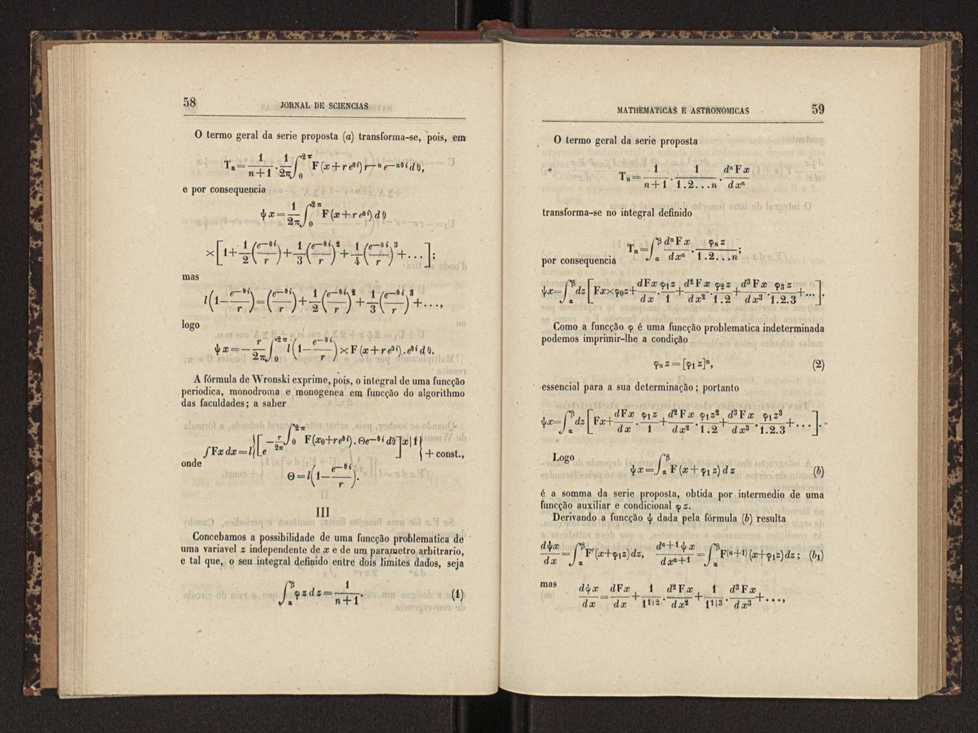 58 JORNAL DE SCIENCIAS
O termo geral da serie proposta (a) transforma-se, pois, em
T_n = \frac{1}{n+1} \cdot \frac{1}{2\pi} \int_0^{2\pi} F(x + r e^{\theta i}) r^{-n} e^{-n\theta i} d\theta,
e por consequencia
\psi x = \frac{1}{2\pi} \int_0^{2\pi} F(x + r e^{\theta i}) d\theta
\times \left[ 1 + \frac{1}{2} \left( \frac{e^{-\theta i}}{r} \right) + \frac{1}{3} \left( \frac{e^{-\theta i}}{r} \right)^2 + \frac{1}{4} \left( \frac{e^{-\theta i}}{r} \right)^3 + \ldots \right];
mas
l \left( 1 - \frac{e^{-\theta i}}{r} \right) = \left( \frac{e^{-\theta i}}{r} \right) + \frac{1}{2} \left( \frac{e^{-\theta i}}{r} \right)^2 + \frac{1}{3} \left( \frac{e^{-\theta i}}{r} \right)^3 + \ldots,
logo
\psi x = - \frac{r}{2\pi} \int_0^{2\pi} l \left( 1 - \frac{e^{-\theta i}}{r} \right) \times F(x + r e^{\theta i}) . e^{\theta i} d\theta.
A fórmula de Wronski exprime, pois, o integral de uma funcção
periodica, monodroma e monogenea em funcção do algorithmo
das faculdades; a saber
\int Fx dx = l \left\{ \left[ e^{-\frac{r}{2\pi} \int_0^{2\pi} F(x_0 + r e^{\theta i}) . \Theta e^{-\theta i} d\theta} \right]^{x|1} \right\} + const.,
onde
\Theta = l \left( 1 - \frac{e^{-\theta i}}{r} \right).
III
Concebamos a possibilidade de uma funcção problematica de
uma variavel z independente de x e de um parametro arbitrario,
e tal que, o seu integral definido entre dois limites dados, seja
\int_\alpha^\beta \varphi z dz = \frac{1}{n+1}. (1)
MATHEMATICAS E ASTRONOMICAS 59
O termo geral da serie proposta
T_n = \frac{1}{n+1} \cdot \frac{1}{1.2 \ldots n} \cdot \frac{d^n Fx}{dx^n}
transforma-se no integral definido
T_n = \int_\alpha^\beta \frac{d^n Fx}{dx^n} \cdot \frac{\varphi_n z}{1.2 \ldots n};
por consequencia
\psi x = \int_\alpha^\beta dz \left[ Fx \times \varphi_0 z + \frac{dFx}{dx} \cdot \frac{\varphi_1 z}{1} + \frac{d^2 Fx}{dx^2} \cdot \frac{\varphi_2 z}{1.2} + \frac{d^3 Fx}{dx^3} \cdot \frac{\varphi_3 z}{1.2.3} + \ldots \right].
Como a funcção φ é uma funcção problematica indeterminada
podemos imprimir-lhe a condição
\varphi_n z = [\varphi_1 z]^n, (2)
essencial para a sua determinação; portanto
\psi x = \int_\alpha^\beta dz \left[ Fx + \frac{dFx}{dx} \cdot \frac{\varphi_1 z}{1} + \frac{d^2 Fx}{dx^2} \cdot \frac{\varphi_1 z^2}{1.2} + \frac{d^3 Fx}{dx^3} \cdot \frac{\varphi_1 z^3}{1.2.3} + \ldots \right].
Logo
\psi x = \int_\alpha^\beta F(x + \varphi_1 z) dz (b)
é a somma da serie proposta, obtida por intermedio de uma
funcção auxiliar e condicional φ z.
Derivando a funcção ψ dada pela fórmula (b) resulta
\frac{d\psi x}{dx} = \int_\alpha^\beta F'(x + \varphi_1 z) dz, \frac{d^{n+1} \psi x}{dx^{n+1}} = \int_\alpha^\beta F^{(n+1)} (x + \varphi_1 z) dz; (b_1)
mas
\frac{d\psi x}{dx} = \frac{dFx}{dx} + \frac{1}{1^{1|2}} \cdot \frac{d^2 Fx}{dx^2} + \frac{1}{1^{1|3}} \cdot \frac{d^3 Fx}{dx^3} + \ldots,